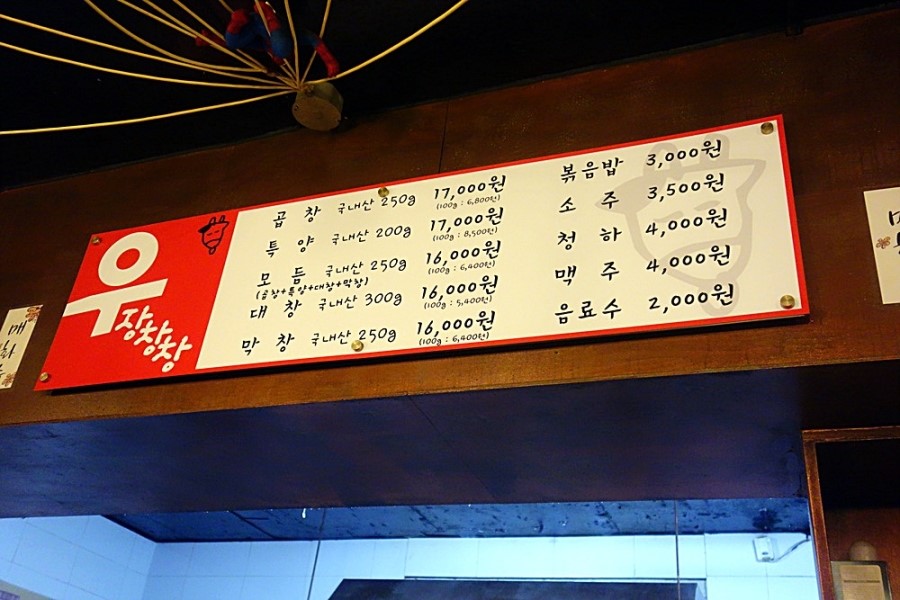 우장창창
곱 창 국내산 250g 17,000원
(100g : 6,800원)
특 양 국내산 200g 17,000원
(100g : 8,500원)
모 듬 국내산 250g 16,000원
(곱창+특양+대창+막창) (100g : 6,400원)
대 창 국내산 300g 16,000원
(100g : 5,400원)
막 창 국내산 250g 16,000원
(100g : 6,400원)
볶음밥 3,000원
소 주 3,500원
청 하 4,000원
맥 주 4,000원
음료수 2,000원
매
화